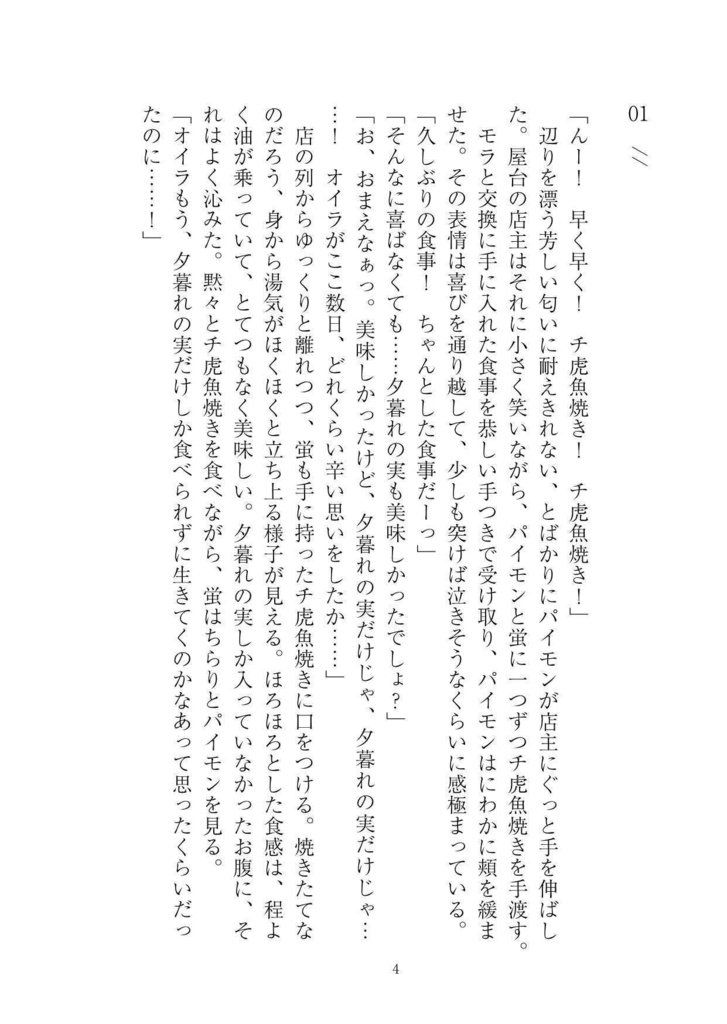 01 //
「んー！　早く早く！　チ虎魚焼き！　チ虎魚焼き！」
　辺りを漂う芳しい匂いに耐えきれない、とばかりにパイモンが店主にぐっと手を伸ばし
た。屋台の店主はそれに小さく笑いながら、パイモンと蛍に一つずつチ虎魚焼きを手渡す。
　モラと交換に手に入れた食事を恭しい手つきで受け取り、パイモンはにわかに頬を緩ま
せた。その表情は喜びを通り越して、少しも突けば泣きそうなくらいに感極まっている。
「久しぶりの食事！　ちゃんとした食事だーっ」
「そんなに喜ばなくても……夕暮れの実も美味しかったでしょ？」
「お、おまえなぁっ。美味しかったけど、夕暮れの実だけじゃ、夕暮れの実だけじゃ…
…！　オイラがここ数日、どれくらい辛い思いをしたか……」
　店の列からゆっくりと離れつつ、蛍も手に持ったチ虎魚焼きに口をつける。焼きたてな
のだろう、身から湯気がほくほくと立ち上る様子が見える。ほろほろとした食感は、程よ
く油が乗っていて、とてつもなく美味しい。夕暮れの実しか入っていなかったお腹に、そ
れはよく沁みた。黙々とチ虎魚焼きを食べながら、蛍はちらりとパイモンを見る。
「オイラもう、夕暮れの実だけしか食べられずに生きてくのかなあって思ったくらいだっ
たのに……！」
4